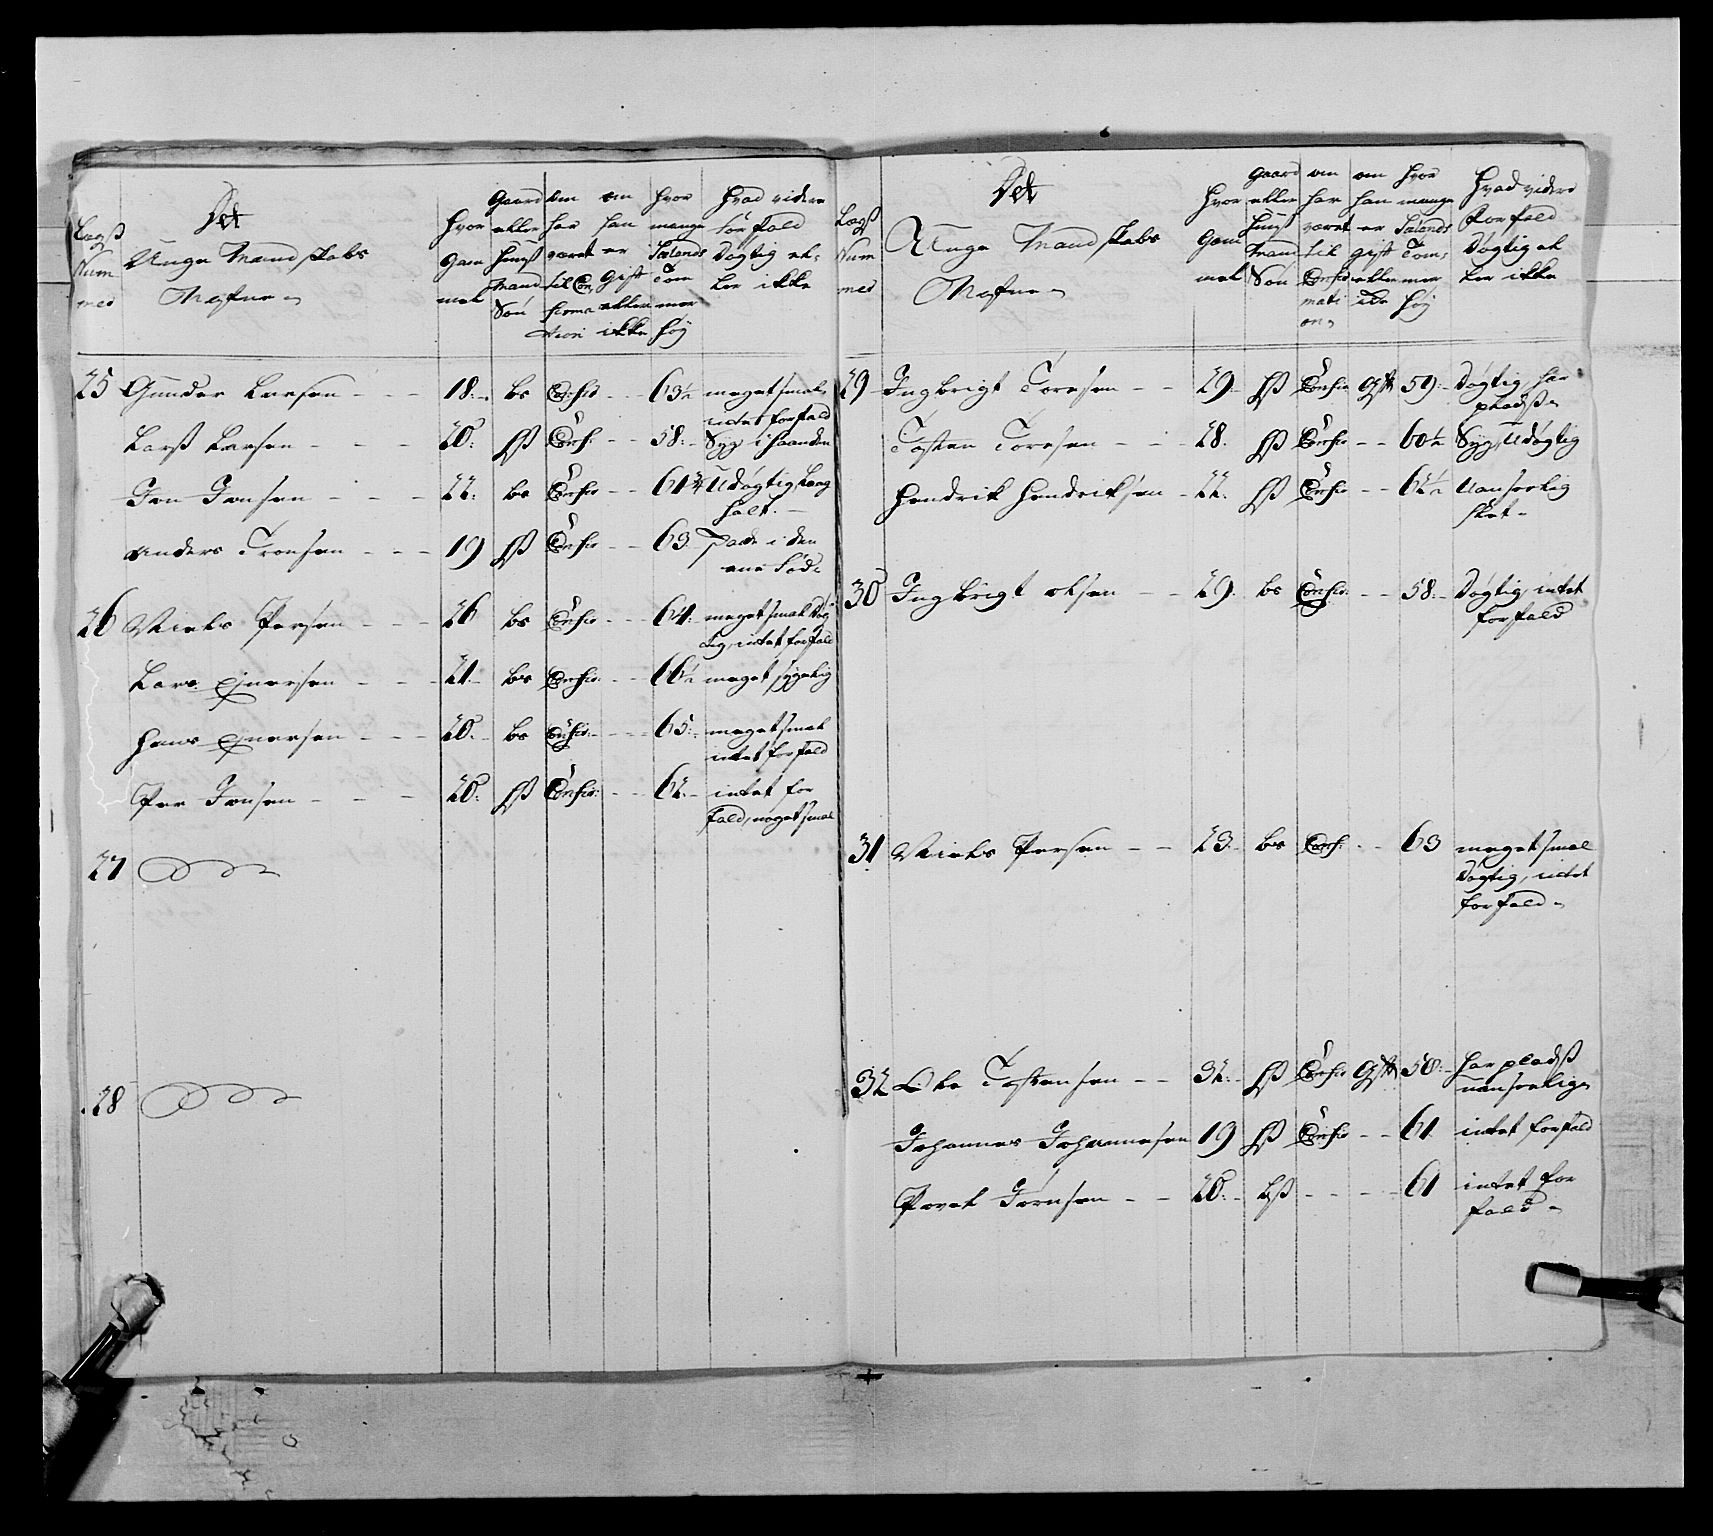 Lægs Num mer | Det Unge Mandskabs Nafne | Hvor Gam mel | Gaard eller Huus Mand Søn | om har været til Con firma tion | om han er Gift eller ikke | Hvor mange Sælands Tom mer høy | Hvad videre forfald Døgtig el- ler ikke
25 Gunder Larsen - - - 18. bs Confir - - 63½ meget smal
intet forfald
Larss Larsen - - - 20: hß Conf: - - 58: Syg i haanden
Jon Jonsen - - - 22: bs Confir - - 61¾ Udøgtig, Lang
halt.
Anders Tronsen - - - 19 hß Confir - - 63. i den
ene fod
26 Niels Persen - - - 26 bs Confir - - 64. meget smal Døg
tig, intet forfald
Lars Ejnersen - - - 21. bs Confir - - 66½ meget sygelig
Hans Ejnersen - - - 20. bs Confir - - 65. meget smal
intet forfald
Per Jonsen - - - 20: hß Confir: - - 62. intet for
fald, meget smal
27
28
Lægs Num mer | Det Unge Mandskabs Nafne | Hvor Gam mel | Gaard eller huus Mand Søn | om har været til Confir mati on | om han er gift eller ikke | Hvor mange Sælands Tom- mer høy | Hvad videre forfald Døgtig el ler ikke
29 Ingbrigt Toresen - - 29. hß Confir Gift 59. Døgtig, har
pladss
Tosten Toresen - - 28. hß Confir - - 60½ Syg, Udøgtig
Hendrik Hendriksen - 22. hß Confir - - 62½ Uanseelig
30 Ingbrigt olsen - - 29. bs Confir. - - 58. Døgtig intet
forfald
31 Niels Persen - - 23. bs Conf: - - 63 meget smal
Døgtig, intet
forfald
32 Ole Tostensen - - 32. hß Confir Gift 58. har pladss
uanseelig
Johannes Johannesen 19 hß Confir - - 61 intet forfald
Povel Jörnsen - - 20. bß - - - - 61 intet for
fald